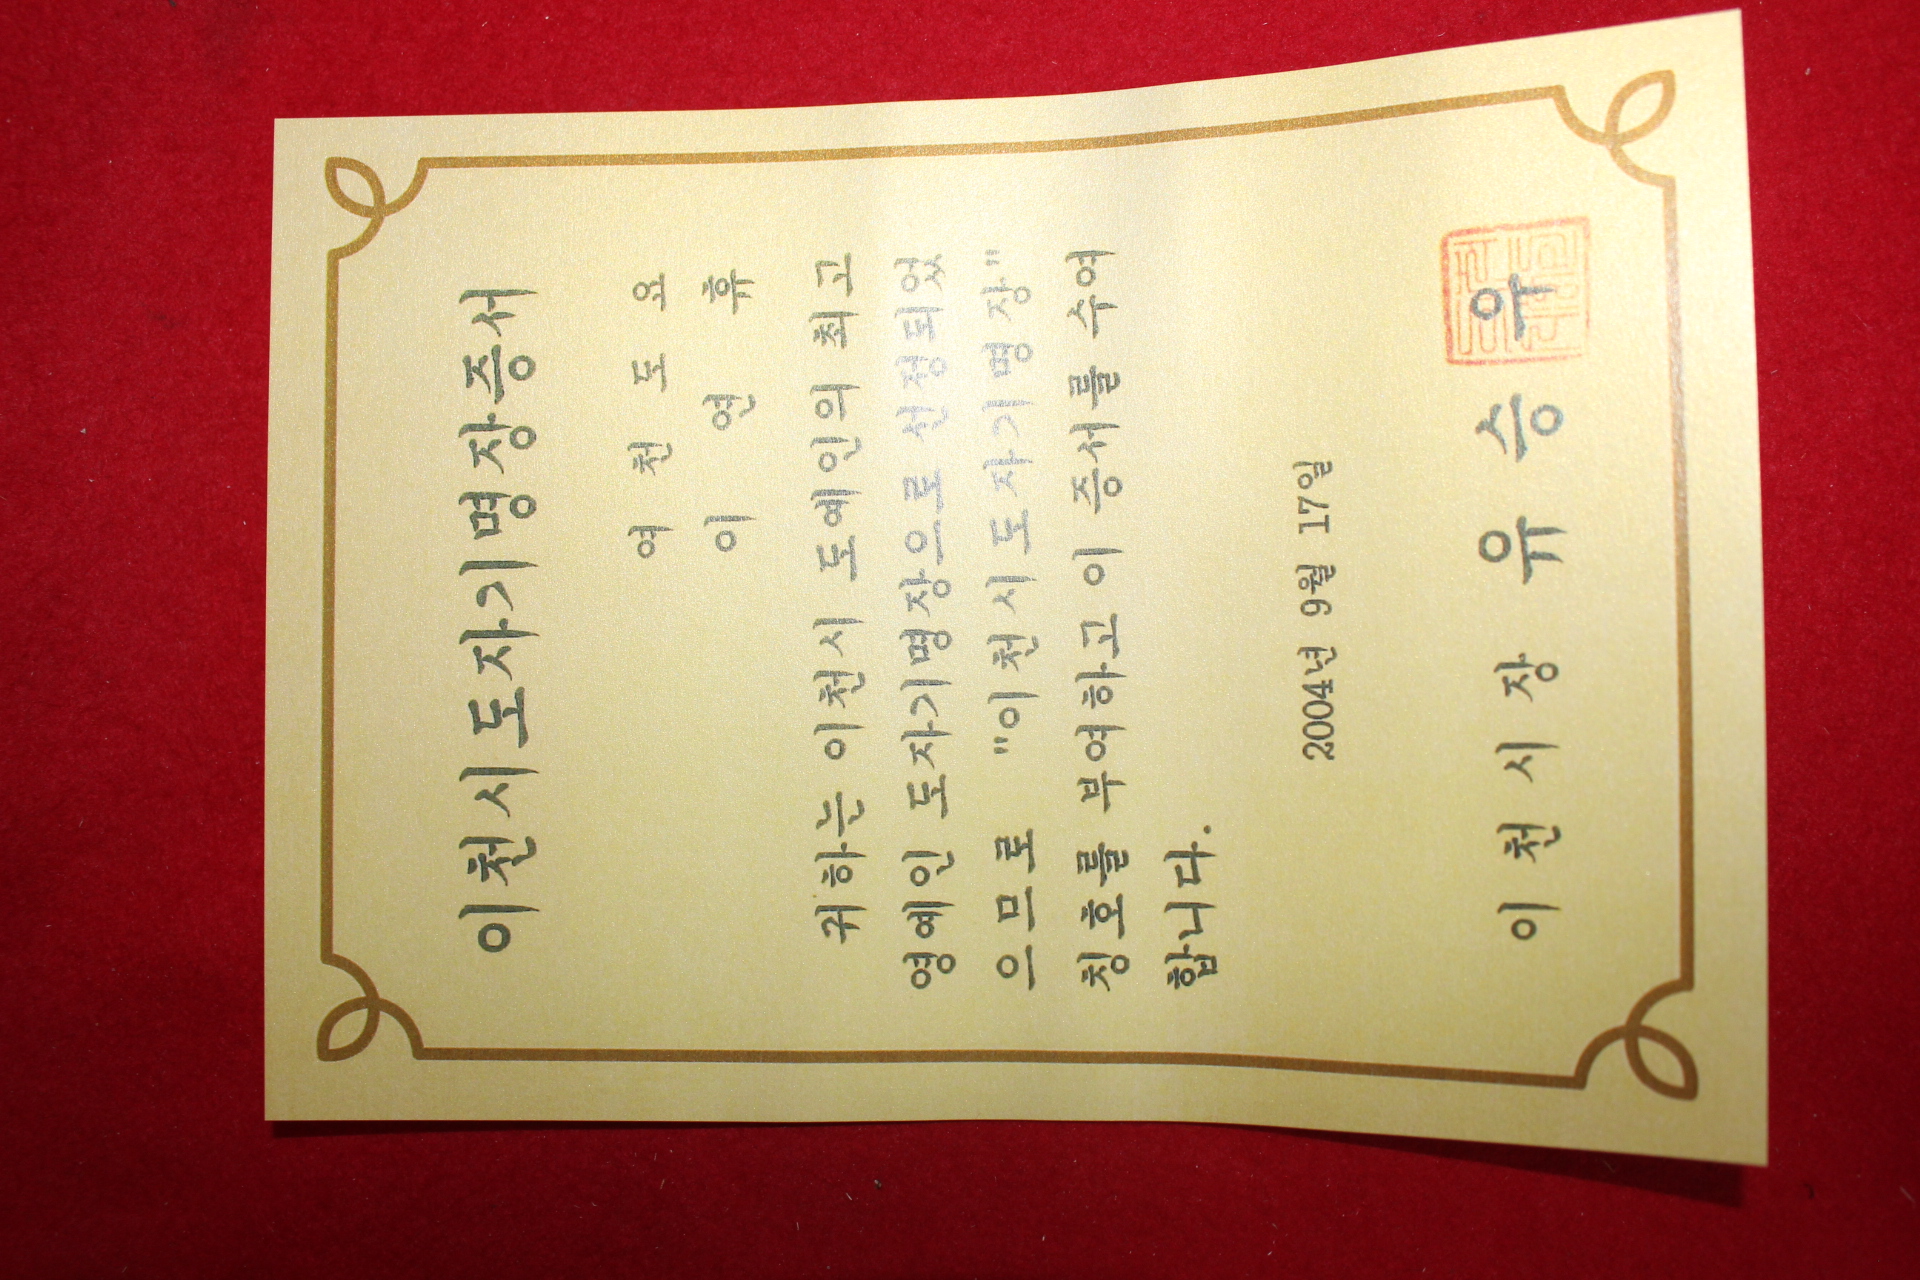 이천시도자기명장증서
여천도요
이연휴
귀하는 이천시 도예인의 최고
영예인 도자기명장으로 선정되었
으므로 "이천시도자기명장"
칭호를 부여하고 이 증서를 수여
합니다.
2004년 9월 17일
이천시장 유승우